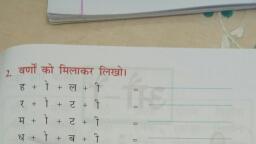 2. वर्णों को मिलाकर लिखो।
ह + ो + ल + ी =
र + ो + ट + ी =
म + ो + ट + ी =
ध + ो + ब + ी =